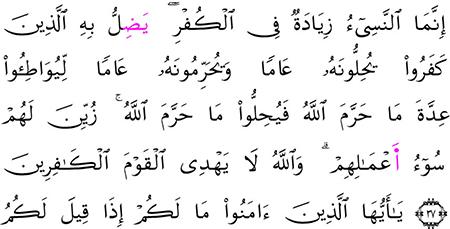 إِنَّمَا ٱلنَّسِىٓءُ زِيَادَةٌ فِى ٱلْكُفْرِ ۖ يَضِلُّ بِهِ ٱلَّذِينَ
كَفَرُوا۟ يُحِلُّونَهُۥ عَامًا وَيُحَرِّمُونَهُۥ عَامًا لِّيُوَاطِـُٔوا۟
عِدَّةَ مَا حَرَّمَ ٱللَّهُ فَيُحِلُّوا۟ مَا حَرَّمَ ٱللَّهُ ۚ زُيِّنَ لَهُمْ
سُوٓءُ أَعْمَـٰلِهِمْ ۗ وَٱللَّهُ لَا يَهْدِى ٱلْقَوْمَ ٱلْكَـٰفِرِينَ
﴿٣٧﴾ يَـٰٓأَيُّهَا ٱلَّذِينَ ءَامَنُوا۟ مَا لَكُمْ إِذَا قِيلَ لَكُمُ